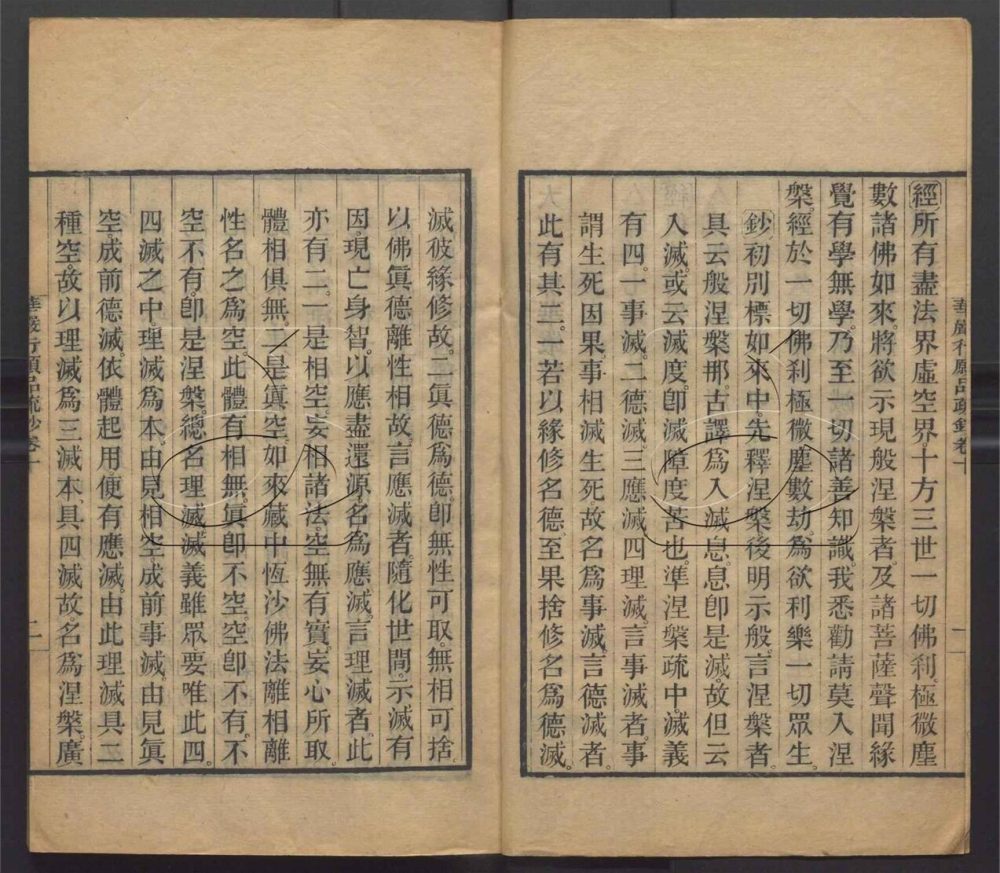 經所有盡法界虛空界。十方三世一切佛刹極微塵
數諸佛如來。將欲示現般涅槃者。及諸菩薩聲聞緣
覺有學無學。乃至一切諸善知識。我悉勸請莫入涅
槃。經於一切佛刹極微塵數劫。為欲利樂一切眾生。
鈔初別標如來中。先釋涅槃。後明示般。言涅槃者。
具云般涅槃那。古譯為入滅息。息卽是滅。故但云
入滅。或云滅度。卽滅障度苦也。準涅槃疏中。滅義
有四。一事滅。二德滅。三應滅。四理滅。言事滅者。事
謂生死因果。事相滅生死故名為事滅。言德滅者。
此有其二。一若以緣修名德。至果捨修名為德滅。
滅彼緣修故。二眞德為德。卽無性可取。無相可捨。
以佛眞德離性相故。言應滅者。隨化世間。示滅有
因。現亡身智。以應盡還源。名為應滅。言理滅者。此
亦有二。一是相空。妄相諸法。空無有實。妄心所取。
體相俱無。二是眞空。如來藏中恆沙佛法離相離
性。名之為空。此體有相無。眞卽不空。空卽不有。不
空不有。卽是涅槃。總名理滅。滅義雖眾。要唯此四。
四滅之中。理滅為本。由見相空。成前事滅。由見眞
空。成前德滅。依體起用。便有應滅。由此理滅具二
種空。故以理滅為三滅本。具四滅故。名為涅槃。廣
華嚴行願品疏鈔卷十
一
華嚴行願品疏鈔卷十
二